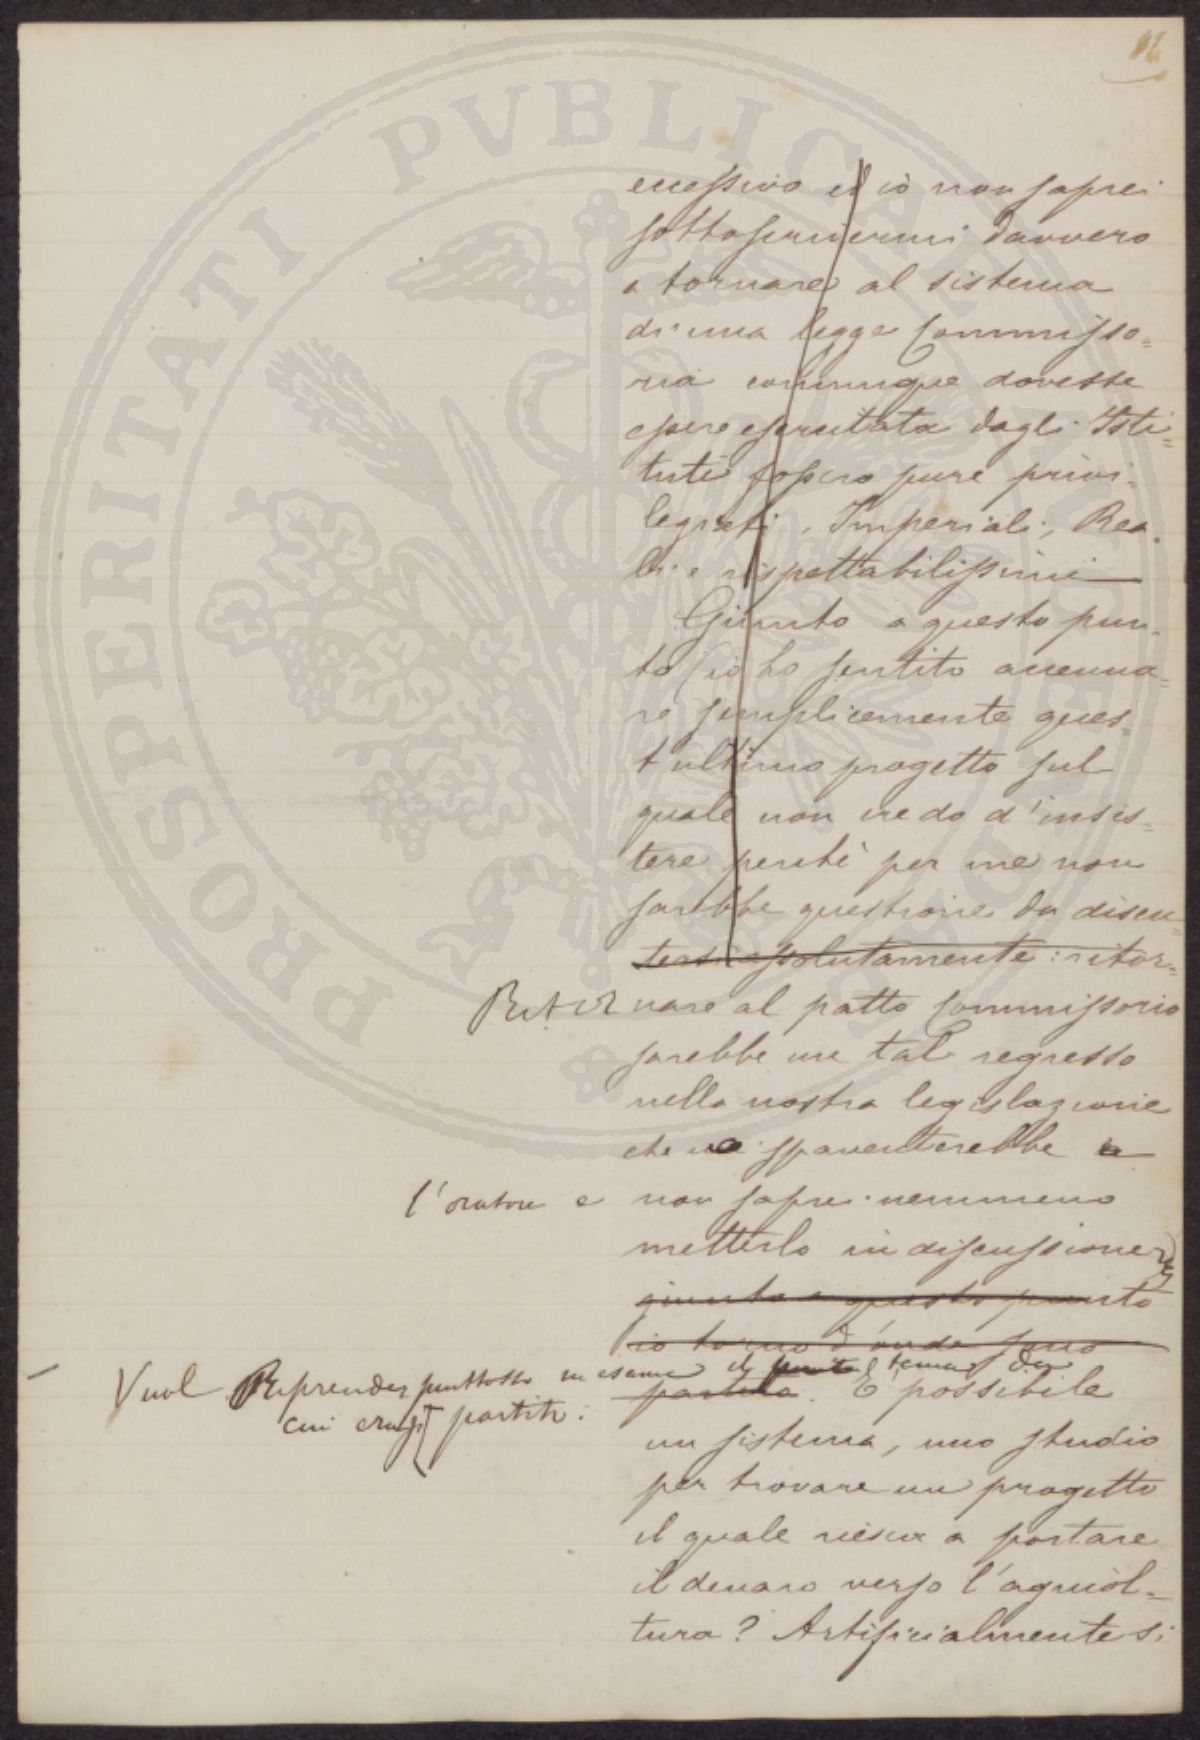 eccessivo ed io non saprei
sottoscrivermi davvero
a tornare al sistema
di una legge Commisso=
ria comunque dovesse
essere esercitata dagli Isti=
tuti fossero pure privi=
legiati, Imperiali, Rea=
li e rispettabilissimi
Giunto a questo pun=
to (io ho sentito accenna=
re semplicemente ques=
t'ultimo progetto sul
quale non credo d'insis=
tere perchè per me non
sarebbe questione da discu=
tersi assolutamente: ritor=
Ritor nare al patto Commissorio
sarebbe un tal regresso
nella nostra legislazione
che spaventerebbe
l'oratore e non sapre nemmeno
metterlo in discussione
giunto a questo punto
io torno d'onde sono
Vuol Riprender piuttosto in esame il punto tema da
partita. È possibile
cui erasi partiti.
un sistema, uno studio
per trovare un progetto
il quale riesca a portare
il denaro verso l'agricol=
tura? Artificialmente si
PROSPERITATI PVBLICAE